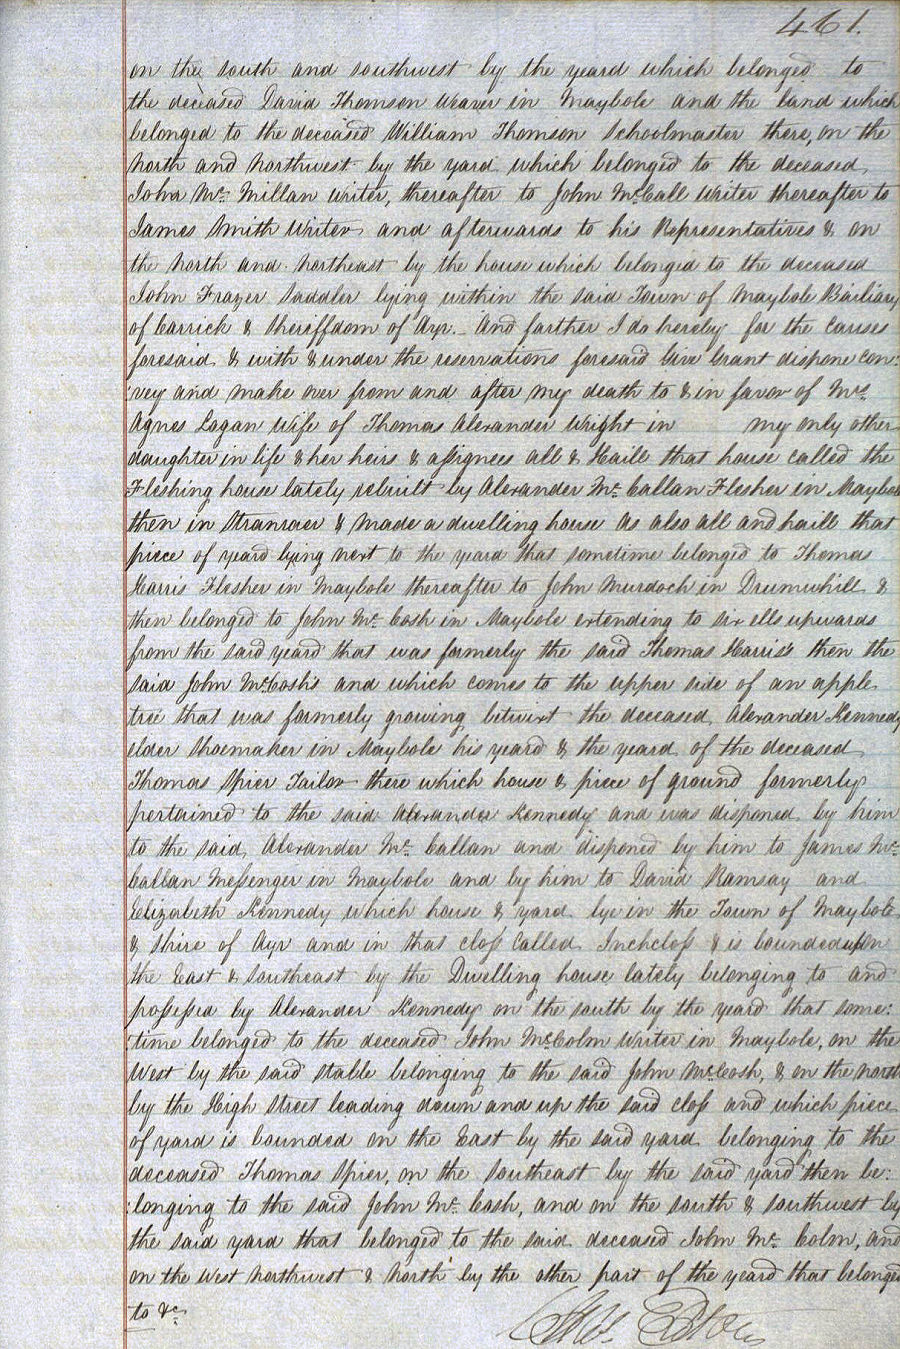 461.
on the south and southwest by the yeard which belonged to
the deceased David Thomson Weaver in Maybole and the land which
belonged to the deceased William Thomson Schoolmaster there, on the
North and Northwest by the yard which belonged to the deceased
John Mc. Millan writer, thereafter to John McCall Writer thereafter to
James Smith Writer and afterwards to his Representatives & on
the North and Northeast by the house which belonged to the deceased
John Frazer Saddler lying within the said Town of Maybole Bailiary
of Carrick & Sheriffdom of Ayr. And farther I do hereby for the causes
foresaid & with & under the reservations foresaid Give Grant dispone con:
:vey and make over from and after my death to & in favor of Mrs.
Agnes Logan Wife of Thomas Alexander Wright in my only other
daughter in life & her heirs & assignees all & Haill that house called the
Fleshing house lately rebuilt by Alexander Mc. Callan Flesher in Maybole
then in Stranraer & made a dwelling house As also all and haill that
piece of yeard lying next to the yeard that sometime belonged to Thomas
Harris Flesher in Maybole thereafter to John Murdoch in Drumwhill &
then belonged to John Mc. Cosh in Maybole extending to six ells upwards
from the said yeard that was formerly the said Thomas Harris's then the
said John McCosh's and which comes to the upper side of an apple
tree that was formerly growing betwixt the deceased, Alexander Kennedy
elder Shoemaker in Maybole his yeard & the yeard of the deceased
Thomas Spier Tailor there which house & piece of ground formerly
pertained to the said Alexander Kennedy and was disponed by him
to the said, Alexander Mc. Callan and disponed by him to James Mc.
Callan Messenger in Maybole and by him to David Ramsay and
Elizabeth Kennedy which house & yard lye in the Town of Maybole
& Shire of Ayr and in that closs Called Inchcloss & is bounded upon
the East & Southeast by the Dwelling house lately belonging to and
possessed by Alexander Kennedy on the south by the yeard that some:
:time belonged to the deceased John McColm Writer in Maybole, on the
West by the said stable belonging to the said John McCosh, & on the north
by the High Street leading down and up the said closs and which piece
of yard is bounded on the East by the said yard belonging to the
deceased Thomas Spier, on the southeast by the said yard then be:
:longing to the said John Mc. Cosh, and on the south & southwest by
the said yard that belonged to the said deceased John Mc. Colm, and
on the West Northwest & North by the other part of the yeard that belonged
to &c